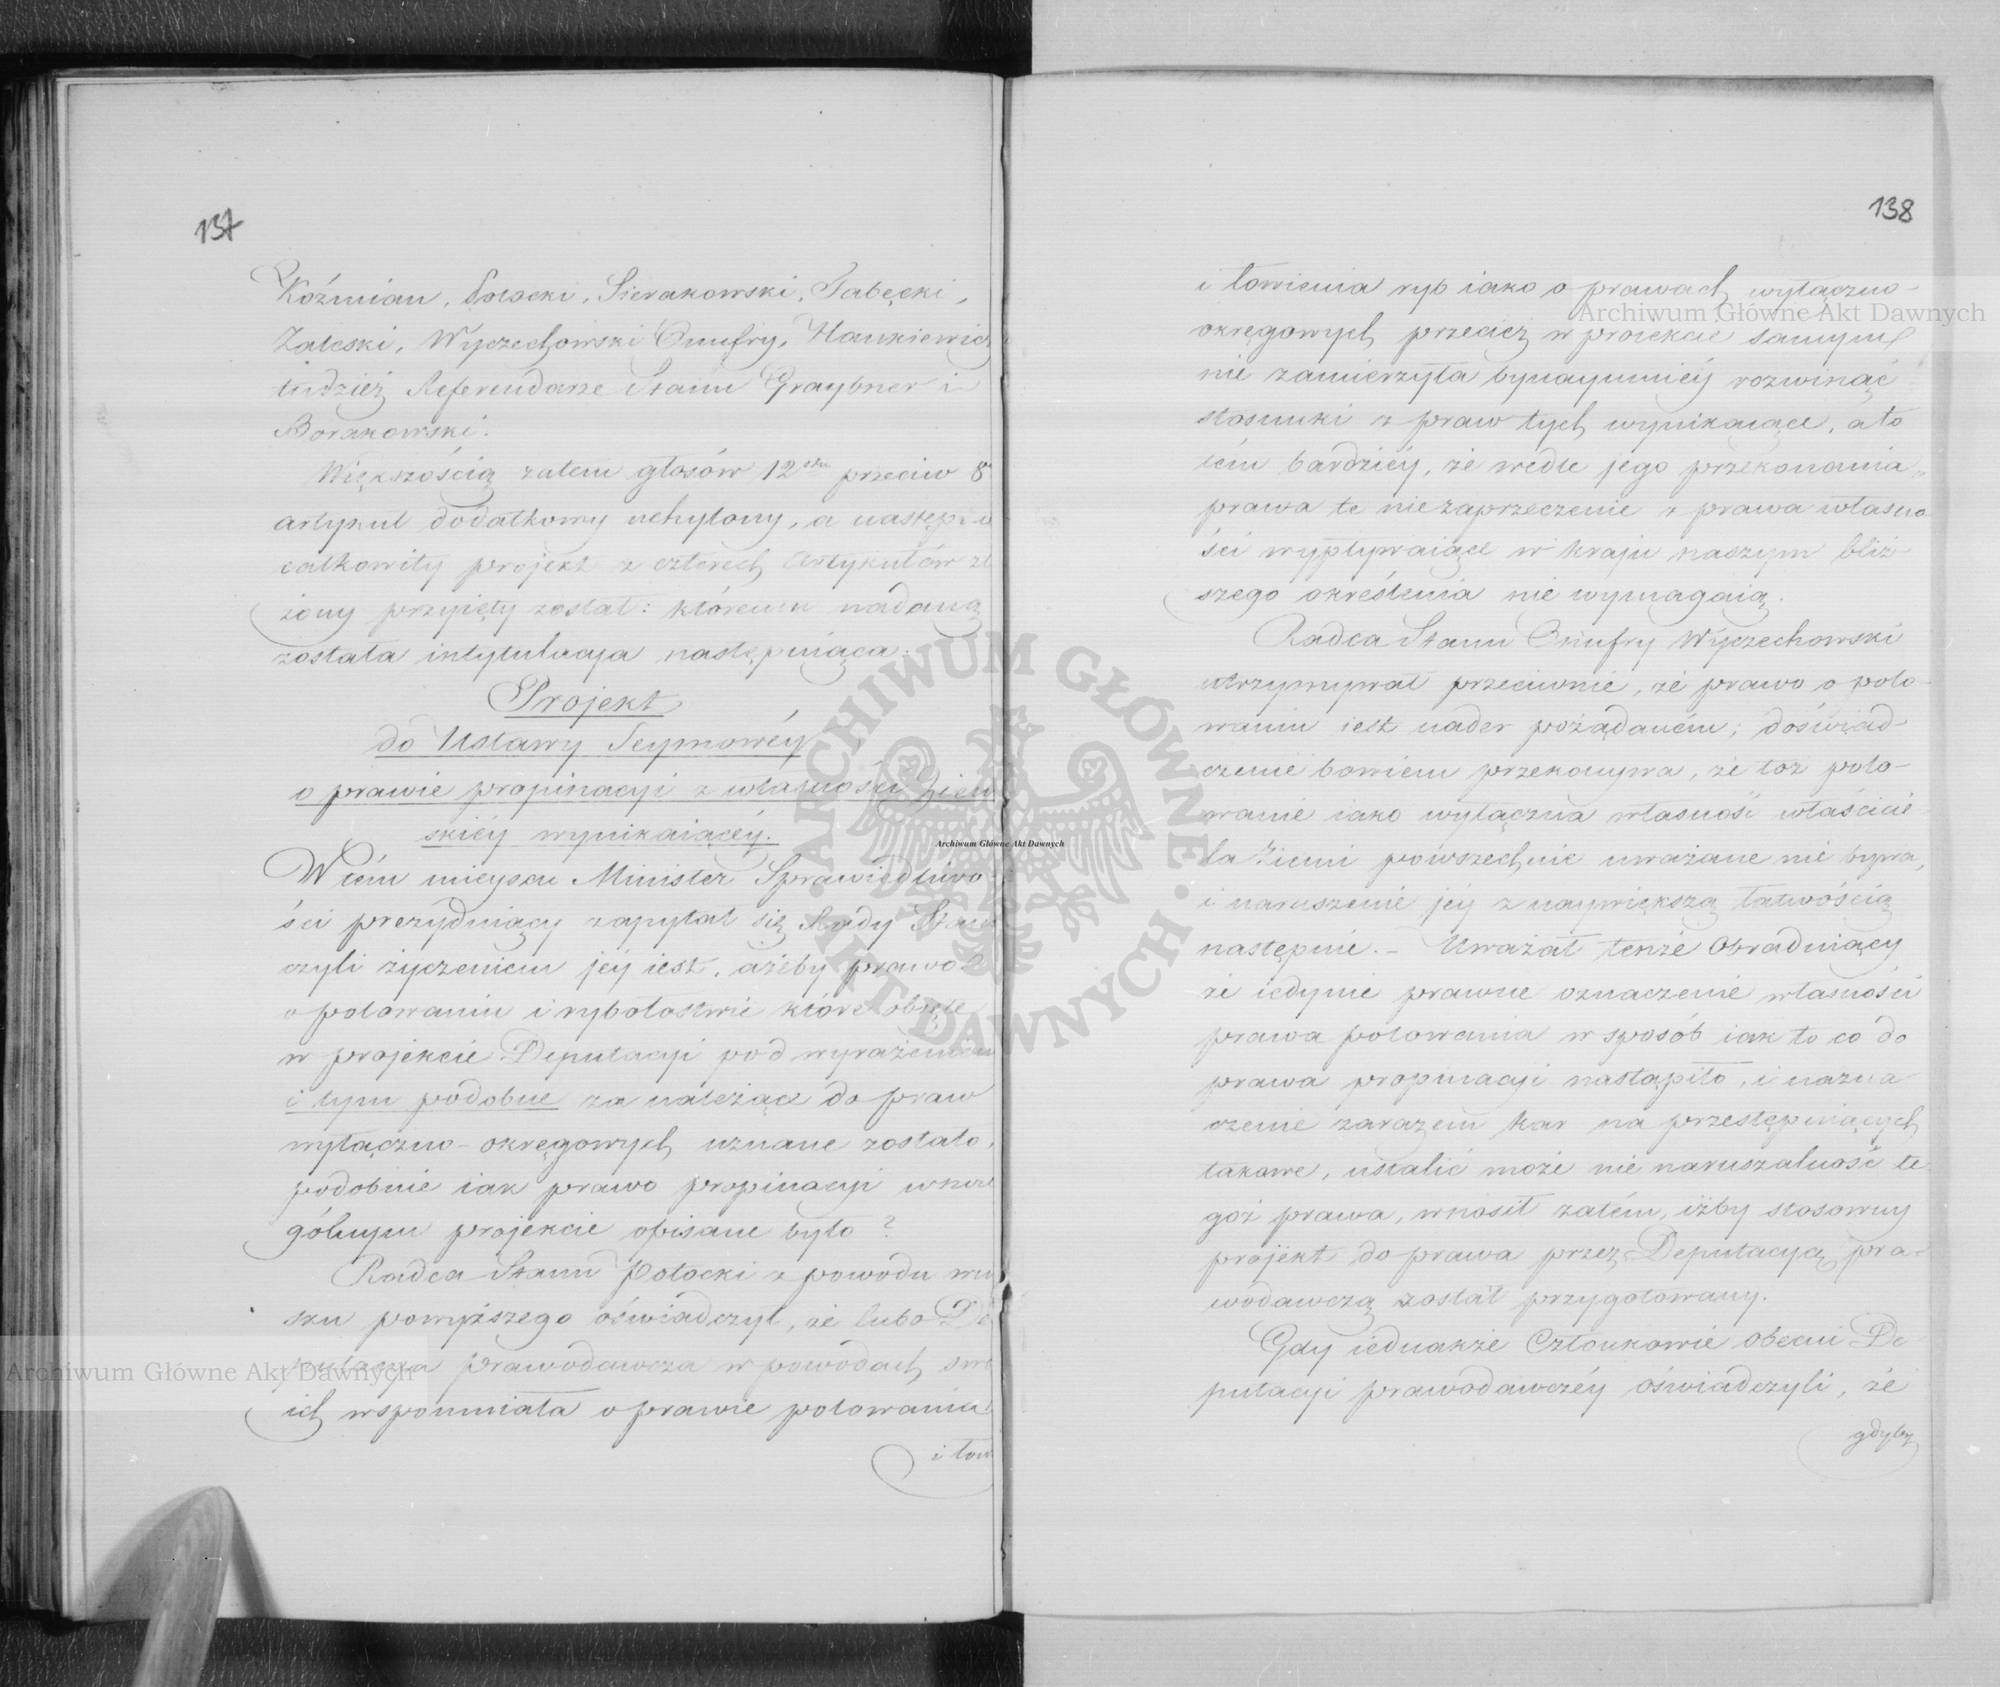 137
Koźmian, Potocki, Sierakowski, Tabęcki,
Zaleski, Wyczechowski Onufry, Hankiewicz
tudzież Referendarze Stanu Graybner i
Borakowski.
Większością zatem głosów 12stu przeciw 8
artykuł dodatkowy uchylony, a następnie
całkowity projekt z czterech Artykułów zło
żony przyięty został: któremu nadaną
została intytulacya następuiąca:
Projekt
do Ustawy Seymowéy
o prawie propinacyi z własności Ziem
skiéy wynikaiącéy.
W tém mieyscu Minister Sprawiedliwo
ści prezyduiący zapytał się Rady Stanu
czyli życzeniem jéy iest, ażeby prawo
o polowaniu i rybołostwie które objęte
w projekcie Deputacyi pod wyrażeniem
i tym podobne za należące do praw
wyłączno-okręgowych uznane zostało,
podobnie iak prawo propinacyi w szcze
gólnym projekcie opisane było?
Radca Stanu Potocki z powodu wnio
sku powyższego oświadczył, że lubo De
putacya prawodawcza w powodach swo
ich wspomniała o prawie polowania
i łow
138
i łowienia ryb iako o prawach wyłączno-
okręgowych przecież w proiekcie samym
nie zamierzyła bynaymniéy rozwinąć
stosunki z praw tych wynikaiące, a to
tém bardziéy, że wedle jego przekonania
prawa te niezaprzeczenie z prawa własno
ści wypływaiące w kraju naszym bliż-
szego określenia nie wymagaią.
Radca Stanu Onufry Wyczechowski
utrzymywał przeciwnie, że prawo o polo
waniu iest nader pożądaném; doświad-
czenie bowiem przekonywa, że toż polo-
wanie iako wyłączna własność właścicie
la Ziemi powszechnie uważane nie bywa,
i naruszenie jéy z naywiększą łatwością
następuie. – Uważał tenże Obraduiący
że iedynie prawne oznaczenie własności
prawa polowania w sposób iak to co do
prawa propinacyi nastąpiło, i nazna
czenie zarazem kar na przestępuiących
takowe, ustalić może nie naruszalność te
goż prawa, wnosił zatém, iżby stosowny
projekt do prawa przez Deputacyą pra-
wodawczą został przygotowany.
Gdy iednakże Członkowie obecni De
putacyi prawodawczéy oświadczyli, że
gdyby
Archiwum Główne Akt Dawnych
Archiwum Główne Akt Dawnych
Archiwum Główne Akt Dawnych
ARCHIWUM GŁÓWNE AKT DAWNYCH